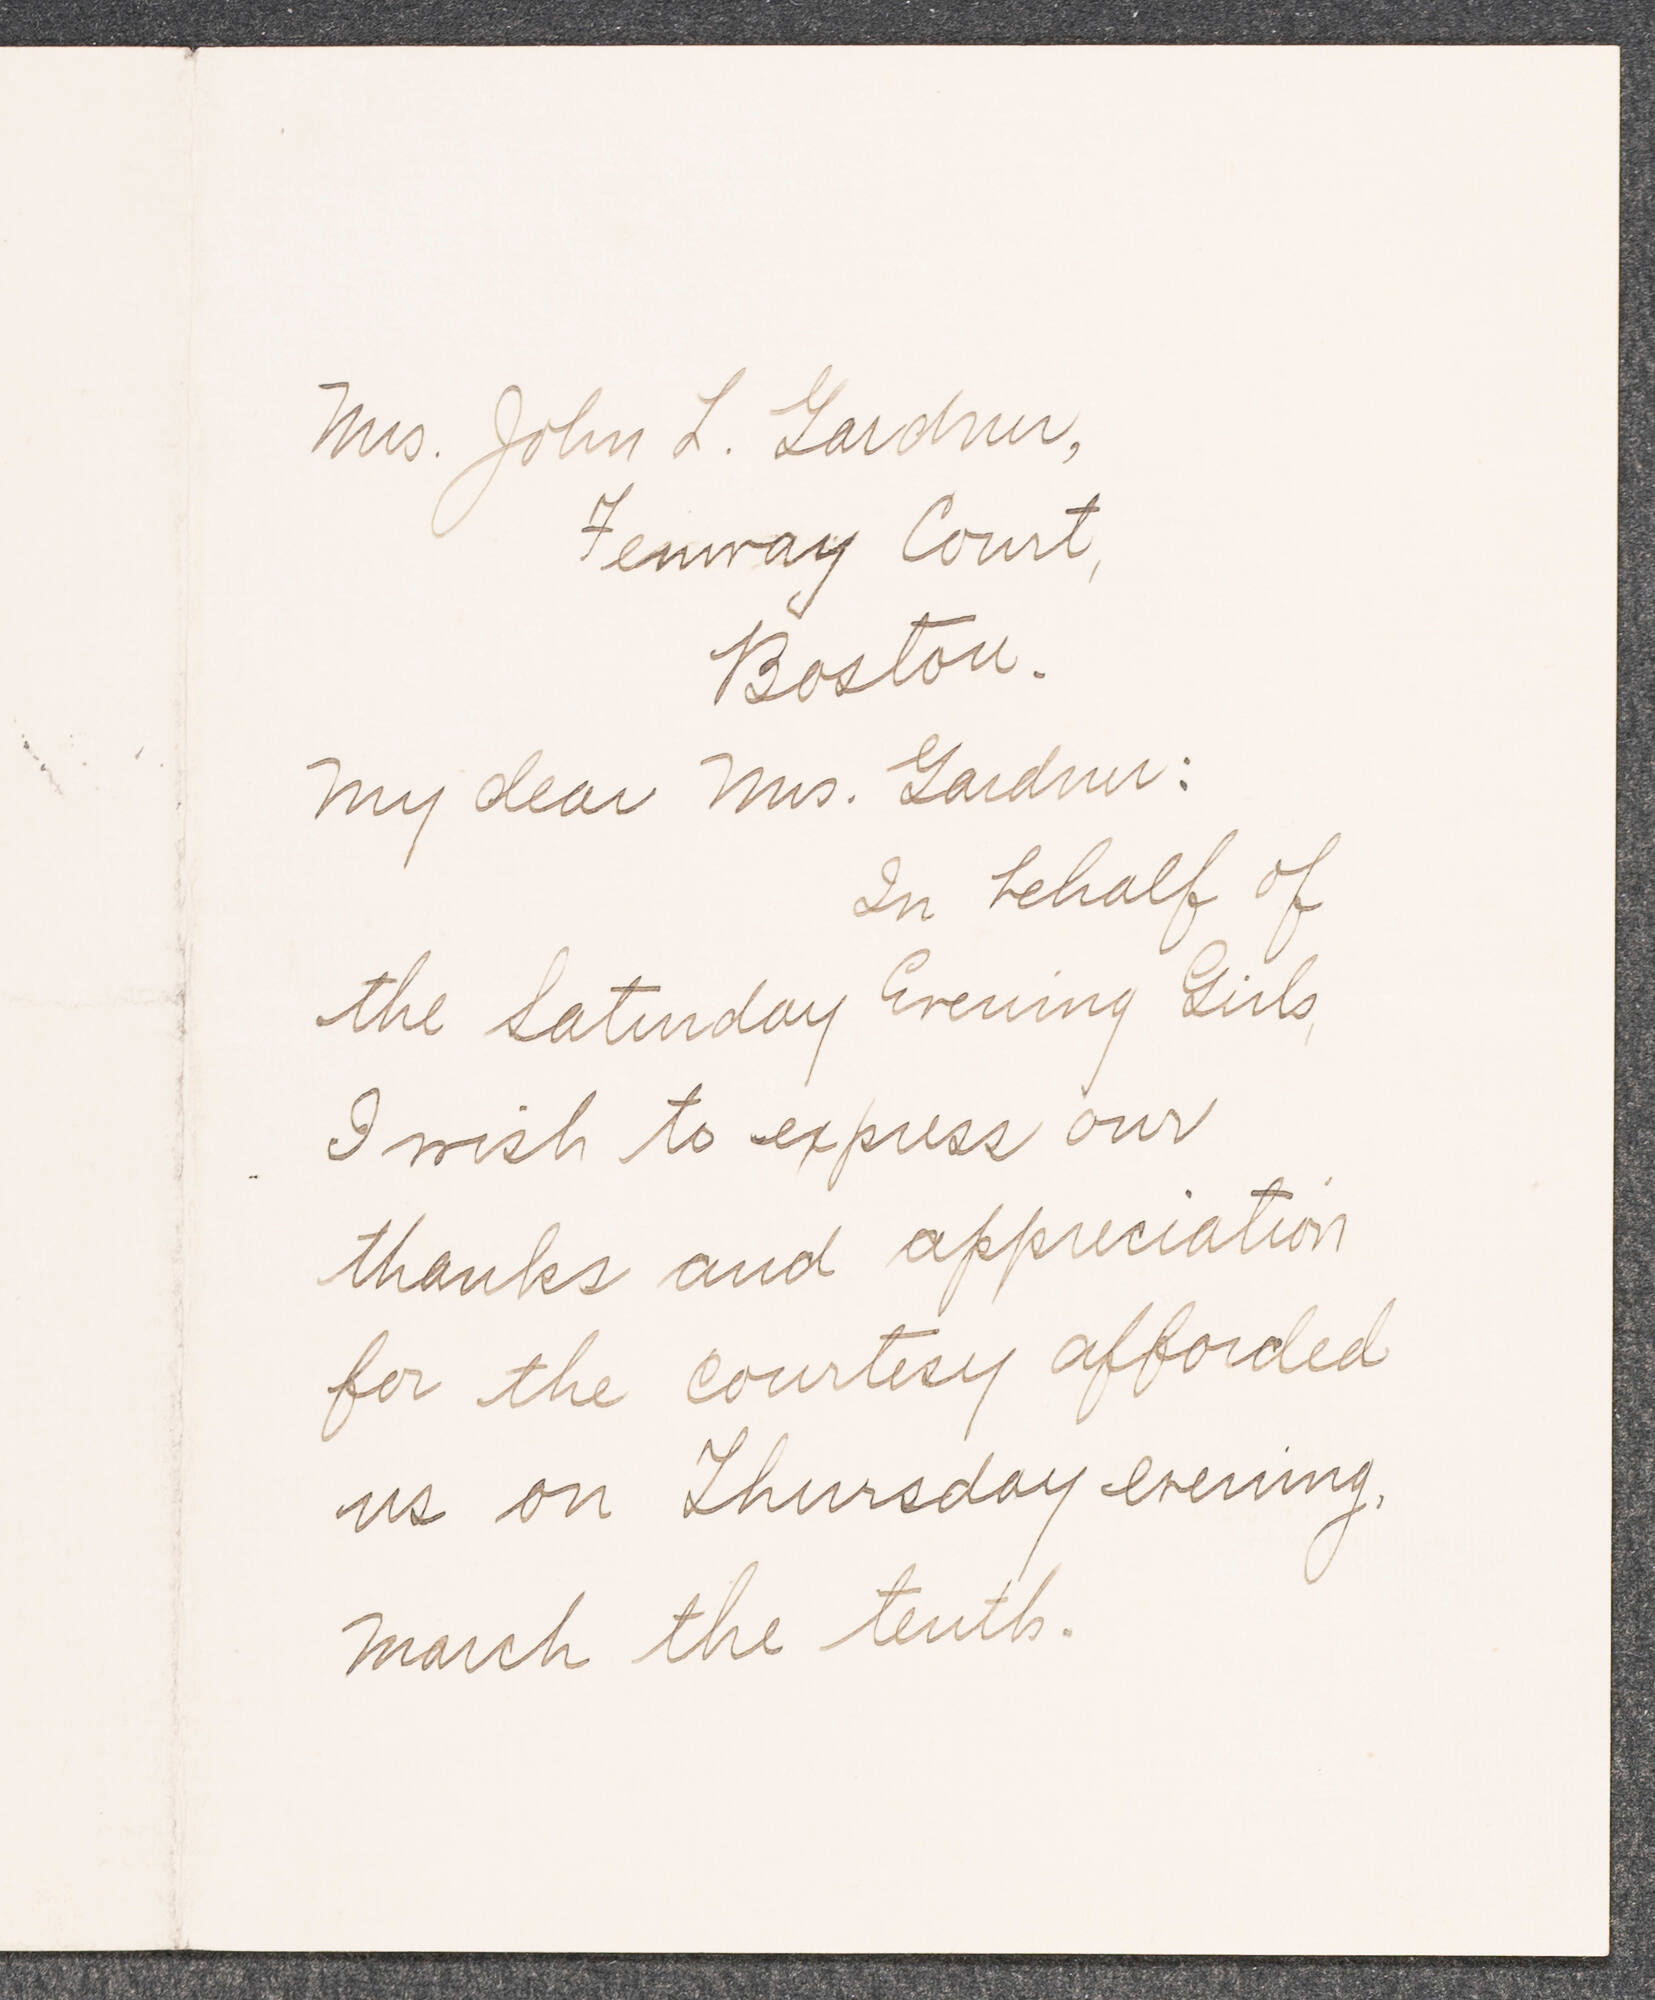 Mrs. John L. Gardner,
Fenway Court,
Boston.
My dear Mrs. Gardner:
In behalf of
the Saturday Evening Girls,
I wish to express our
thanks and appreciation
for the courtesy afforded
us on Thursday evening,
March the tenth.